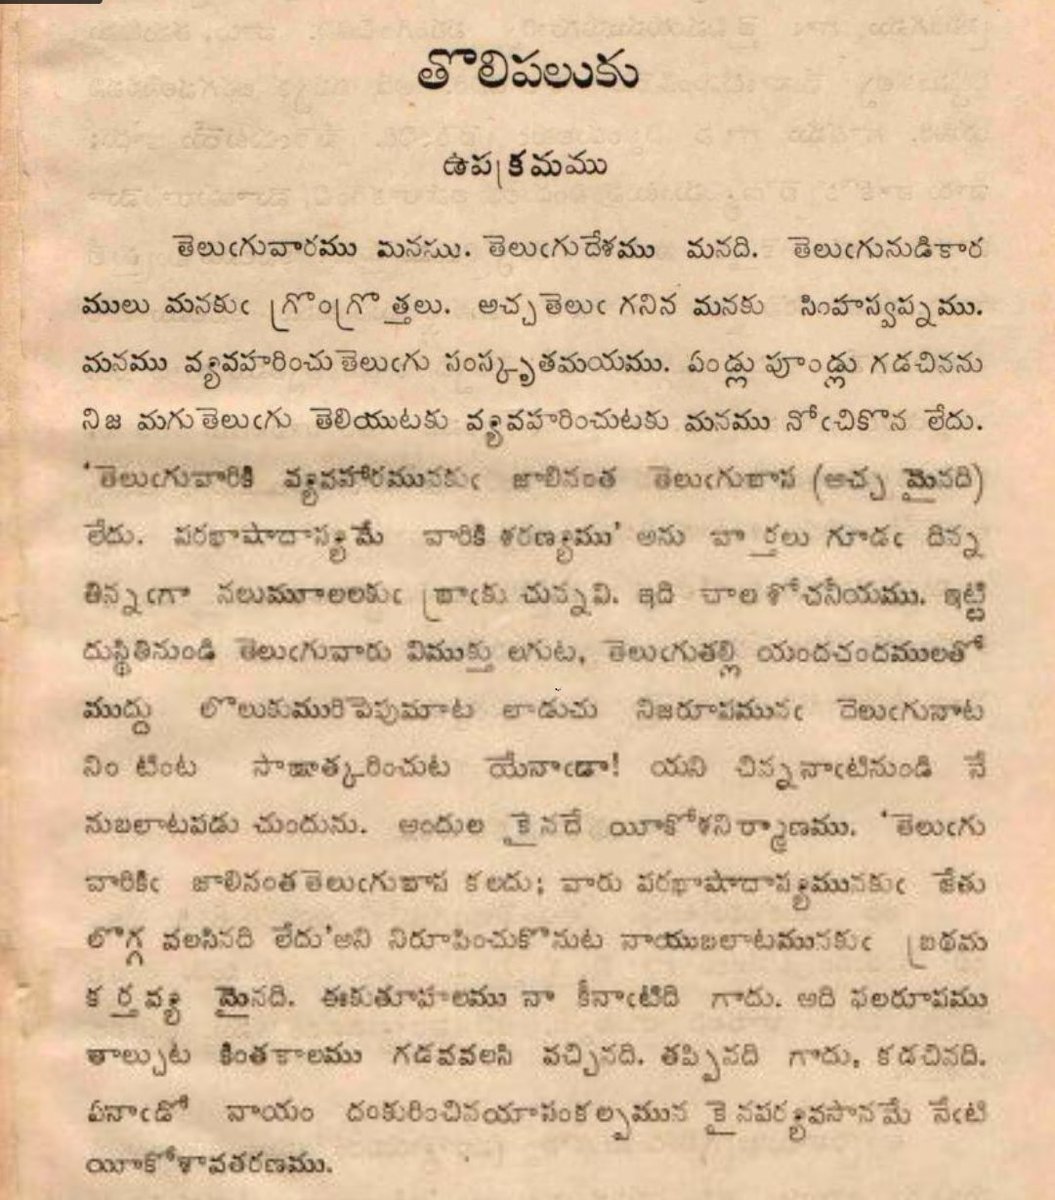 తొలిపలుకు
ఉపక్రమము
తెలుఁగువారము మనము. తెలుఁగుదేశము మనది. తెలుఁగునుడికార
ములు మనకుఁ గ్రొంగ్రొత్తలు. అచ్చతెలుఁ గనిన మనకు సింహస్వప్నము.
మనము వ్యవహరించుతెలుఁగు సంస్కృతమయము. ఏండ్లు పూండ్లు గడచినను
నిజ మగుతెలుఁగు తెలియుటకు వ్యవహరించుటకు మనము నోఁచికొన లేదు.
'తెలుఁగువారికి వ్యవహారమునకుఁ జాలినంత తెలుఁగుబాస (అచ్చ మైనది)
లేదు. పరభాషాదాస్యమే వారికి శరణ్యము' అను వార్తలు గూడఁ దిన్న
తిన్నఁగా నలుమూలలకుఁ బ్రాఁకు చున్నవి. ఇది చాల శోచనీయము. ఇట్టి
దుస్థితినుండి తెలుఁగువారు విముక్తు లగుట, తెలుఁగుతల్లి యందచందములతో
ముద్దు లొలుకుమురిపెపుమాట లాడుచు నిజరూపమునఁ దెలుఁగునాట
నిం టింట సాక్షాత్కరించుట యేనాఁడా! యని చిన్ననాఁటినుండి నే
నుబలాటపడు చుందును. అందుల కైనదే యీకోశనిర్మాణము. 'తెలుఁగు
వారికిఁ జాలినంతతెలుఁగుబాస కలదు; వారు పరభాషాదాస్యమునకుఁ జేతు
లొగ్గ వలసినది లేదు'అని నిరూపించుకొనుట నాయుబలాటమునకుఁ బ్రథమ
కర్తవ్య మైనది. ఈకుతూహలము నా కీనాఁటిది గాదు. అది ఫలరూపము
తాల్చుట కింతకాలము గడవవలసి వచ్చినది. తప్పినది గాదు, కడచినది.
ఏనాఁడో నాయం దంకురించినయాసంకల్పమున కైనపర్యవసానమే నేఁటి
యీకోశావతరణము.